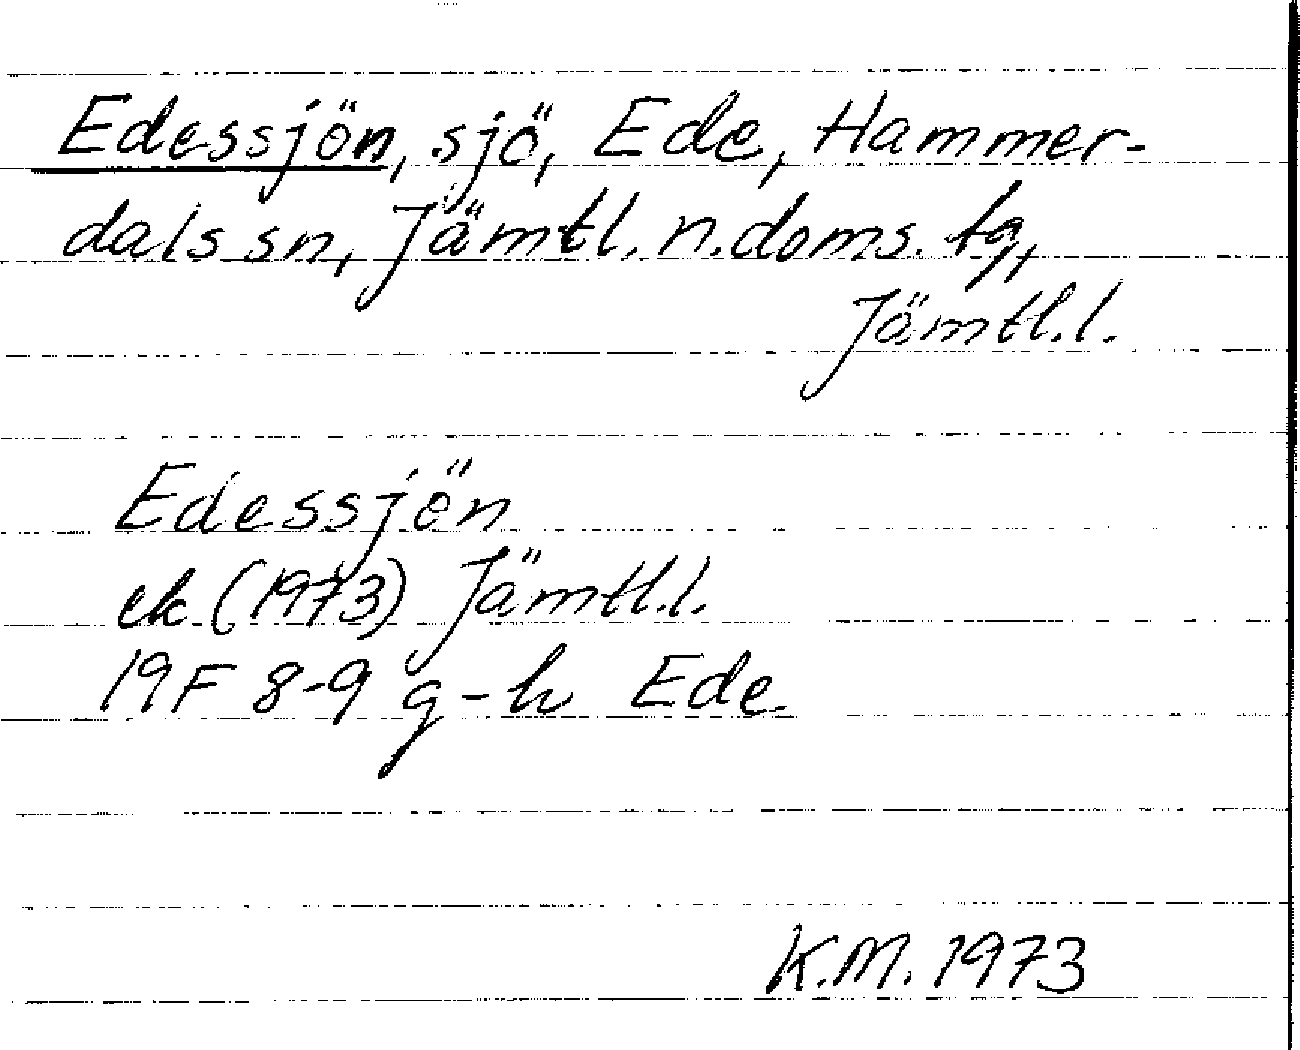 Edessjön, sjö, Ede, Hammer-
dals sn, Jämtl. n. doms. tg,
Jämtl. l.
Edessjön
ek (1973) Jämtl. l.
19F 8-9 g-h Ede
K.M. 1973